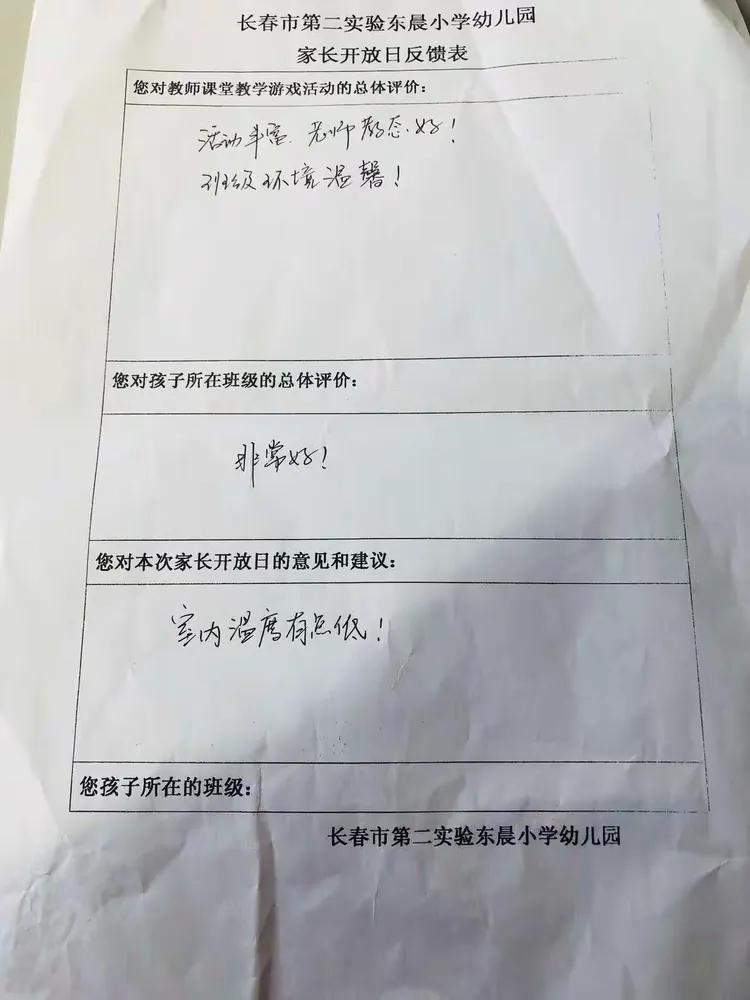 长春市第二实验东晨小学幼儿园
家长开放日反馈表
您对教师课堂教学游戏活动的总体评价：
活动丰富、老师教态好！
班级环境温馨！
您对孩子所在班级的总体评价：
非常好！
您对本次家长开放日的意见和建议：
室内温度有点低！
您孩子所在的班级：
长春市第二实验东晨小学幼儿园